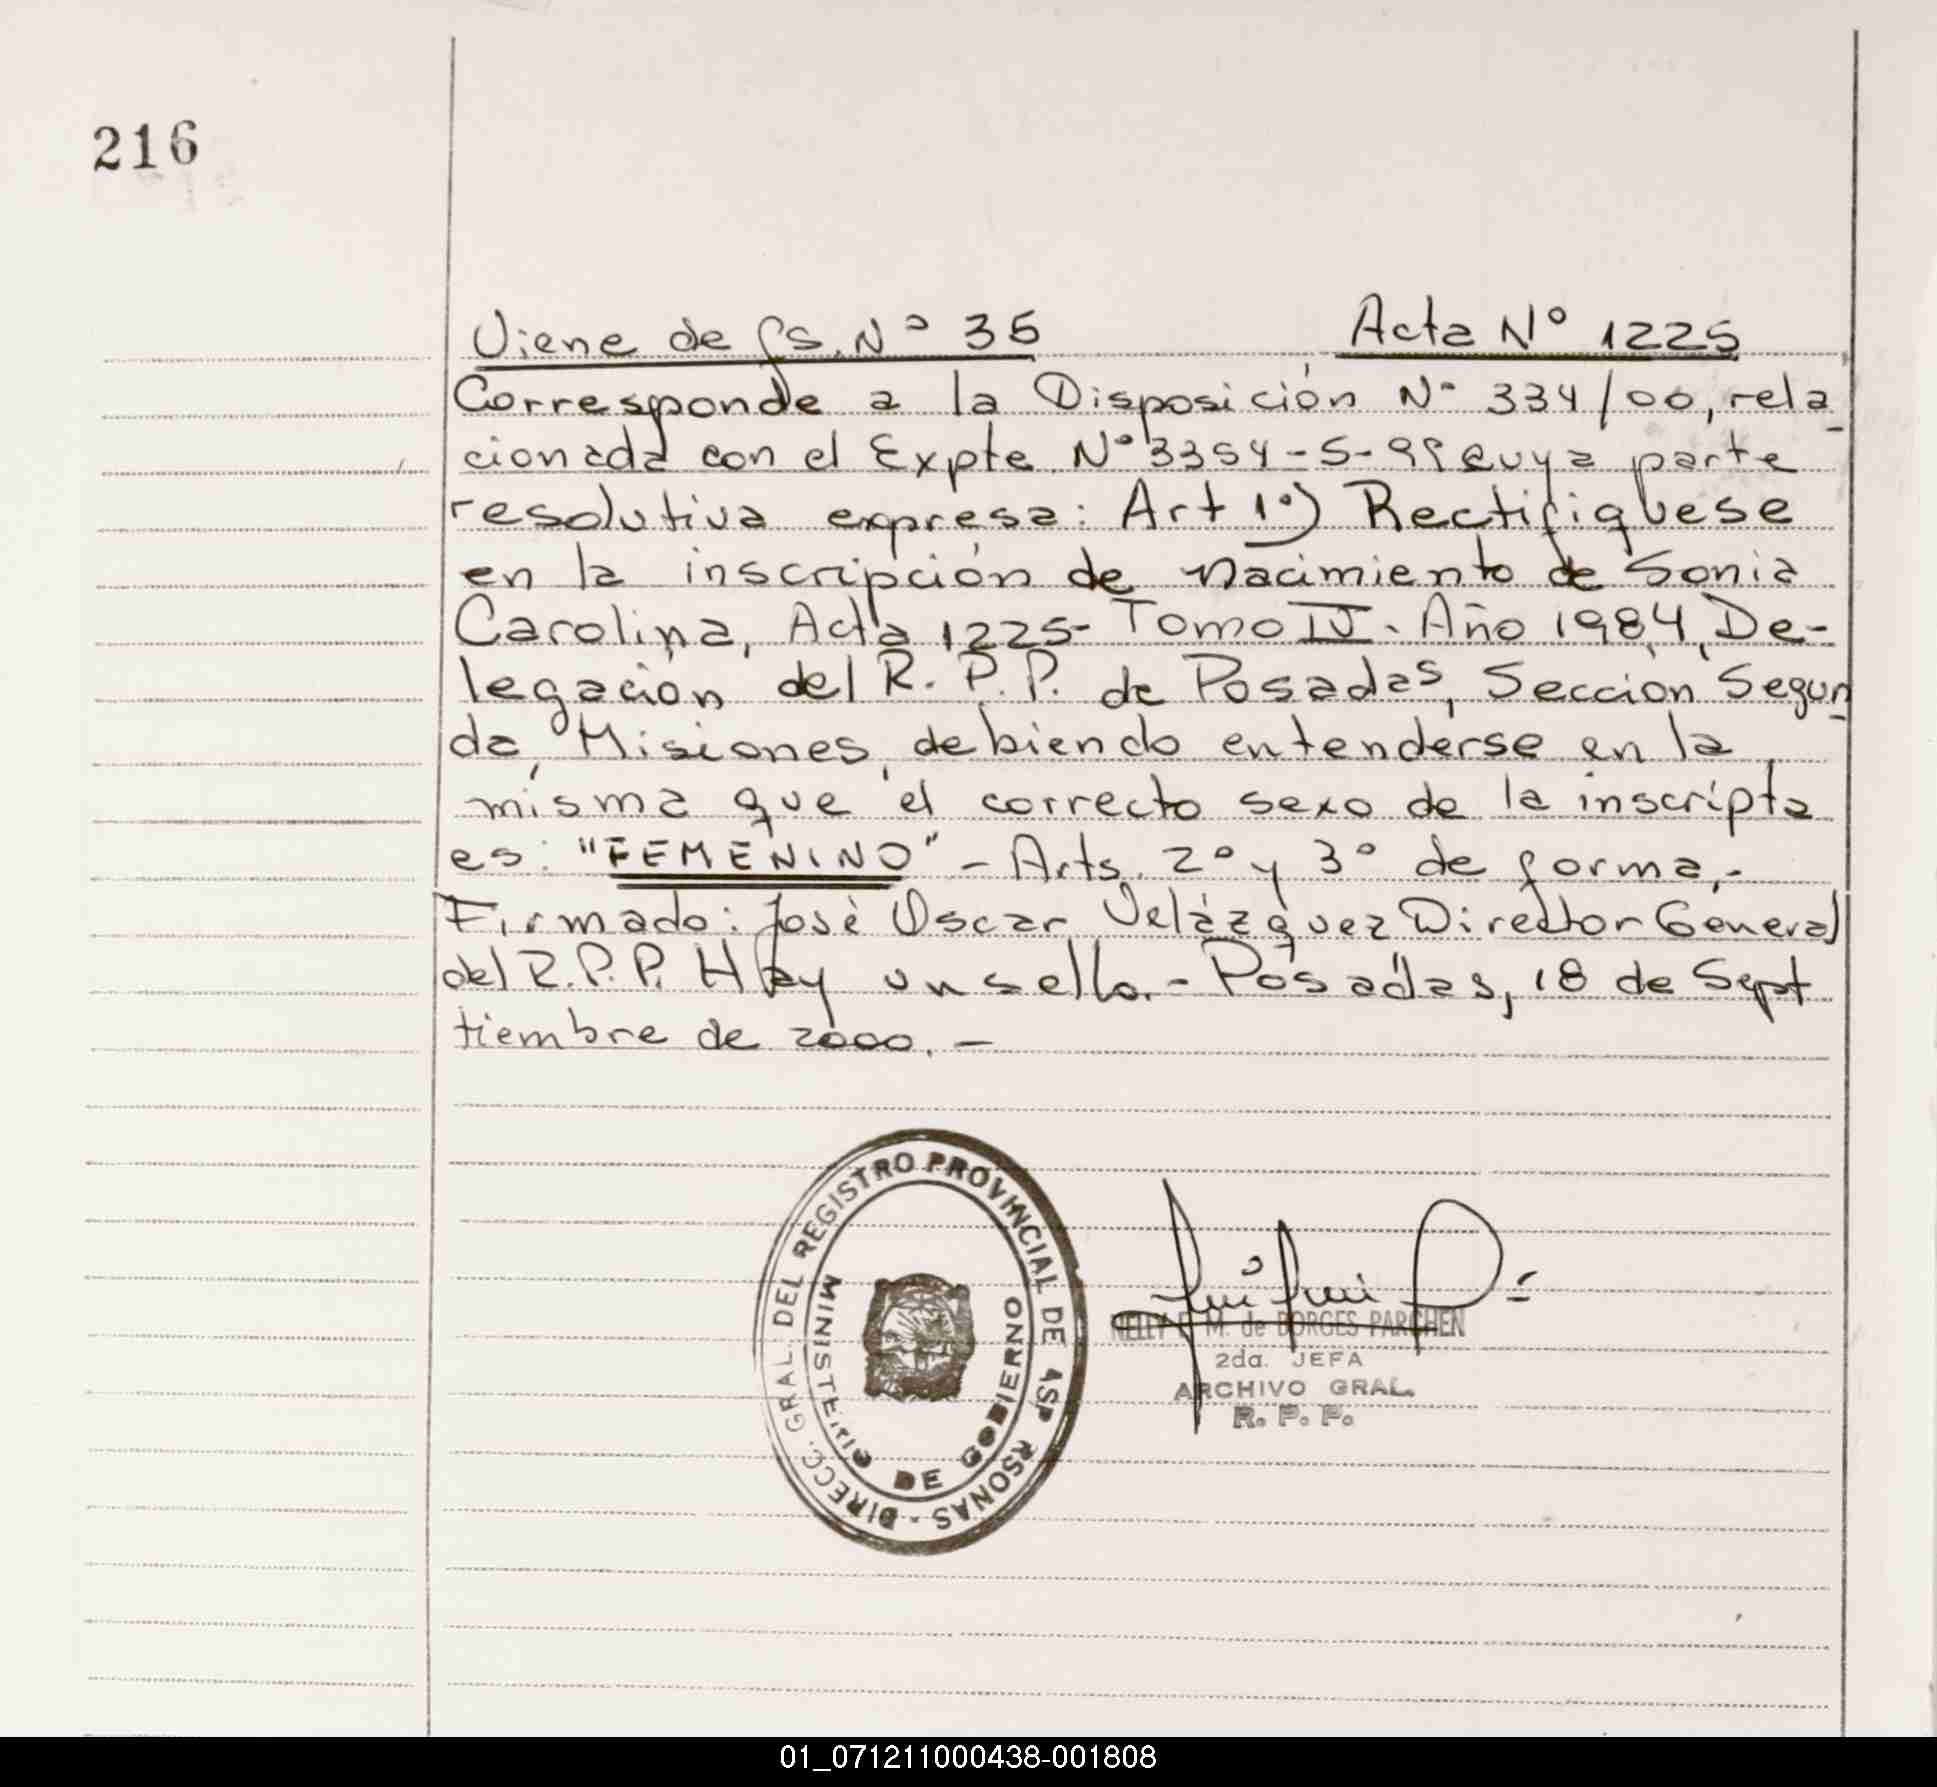 216
Viene de fs. Nº 35 Acta Nº 1225
Corresponde a la Disposición Nº 334/00, rela-
cionada con el Expte Nº 3354-S-99 cuya parte
resolutiva expresa: Art 1º) Rectifiquese
en la inscripción de nacimiento de Sonia
Carolina, Acta 1225- Tomo IV. Año 1984, De-
legación del R.P.P. de Posadas, Sección Segun-
da, Misiones, debiendo entenderse en la
misma que el correcto sexo de la inscripta
es: "FEMENINO" - Arts. 2º y 3º de forma,-
Firmado: José Oscar Velázquez Director General
del R.P.P. Hay un sello.- Posadas, 18 de Sept
tiembre de 2000. -
DIRECC. GRAL. DEL REGISTRO PROVINCIAL DE RSONAS -
MINISTERIO DE GOBIERNO
NELLY M. de BORGES PARCHEN
2da. JEFA
ARCHIVO GRAL.
R. P. P.
01_071211000438-001808